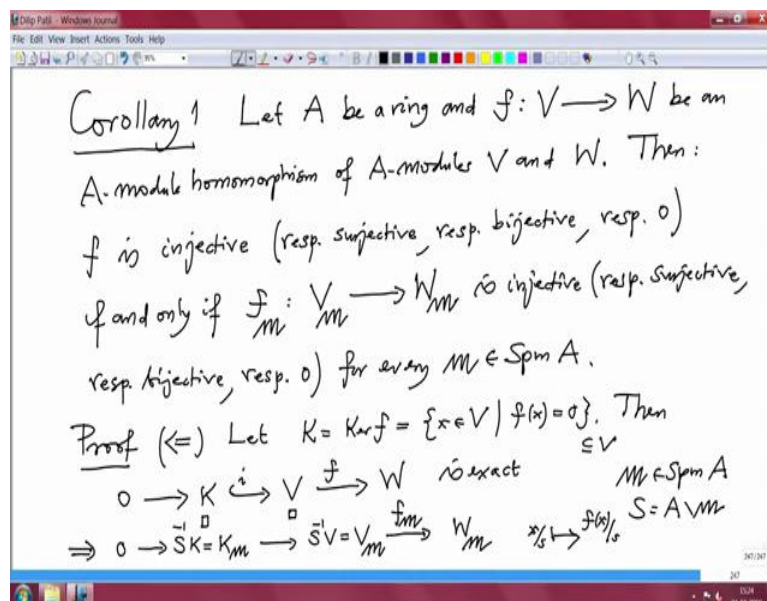 Dilip Patil - Windows Journal
File Edit View Insert Actions Tools Help
Corollary 1 Let A be a ring and f: V ⟶ W be an
A-module homomorphism of A-modules V and W. Then:
f is injective (resp. surjective, resp. bijective, resp. 0)
if and only if f_m: V_m ⟶ W_m is injective (resp. surjective,
resp. bijective, resp. 0) for every m ∈ Spm A.
Proof (<=) Let K = Ker f = {x ∈ V | f(x) = 0}. Then
⊆ V
0 ⟶ K ↪^i V ⟶^f W is exact m ∈ Spm A
S = A \ m
⇒ 0 → S^{-1}K = K_m ⟶ S^{-1}V = V_m ⟶^{f_m} W_m x/s ↦ f(x)/s
247/247
247
15:24